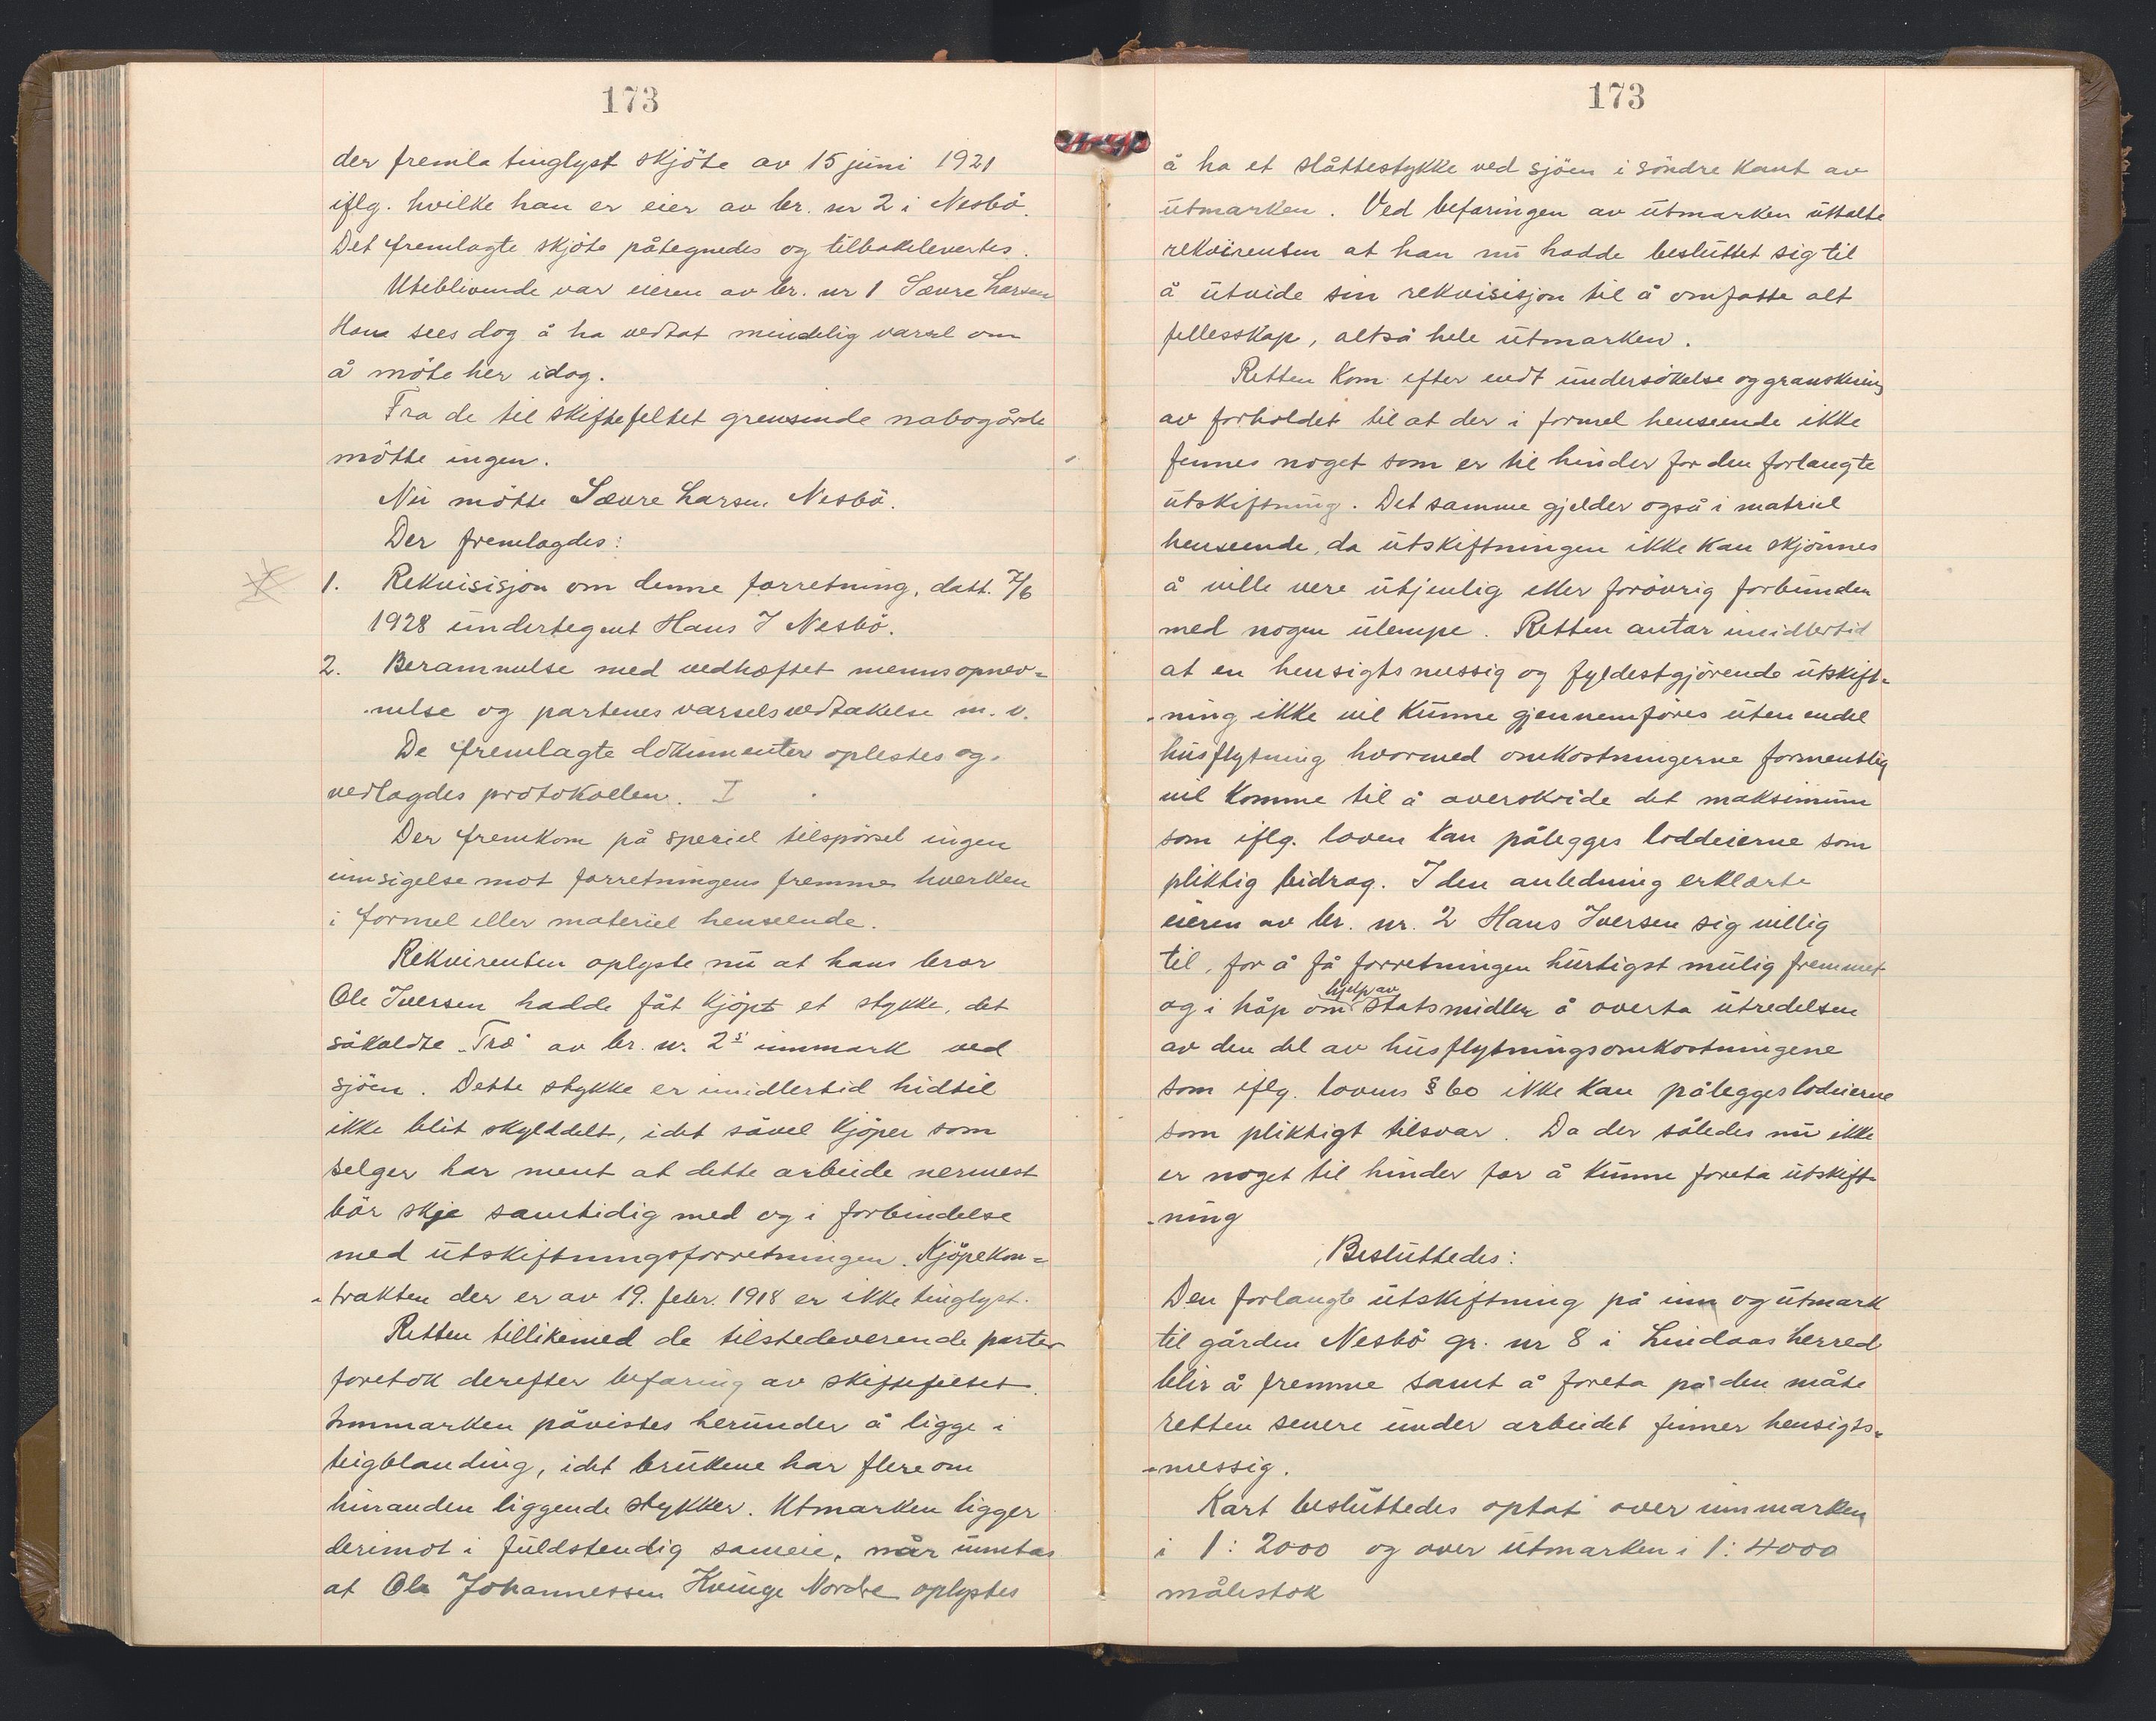 173
der fremla tinglyst skjöte av 15 juni 1921
iflg. hvilke han er eier av br. nr 2 i Nesbö.
Det fremlagte skjöte påtegnedes og tilbakelevertes.
Uteblivende var eieren av br. nr 1 Sævre Larsen
Hans sees dog å ha vedtat mindelig varsel om
å möte her idag.
Fra de til skiftefeltet grensende nabogårde
mötte ingen.
Nú mötte Sævre Larsen Nesbö.
Der fremlagdes:
1. Rekvisisjon om denne forretning, datt. 7/6
1928 úndertegnet Hans J Nesbö.
2. Berammelse med vedhæftet mennsopnev=
-nelse og partenes varselsvedtakelse m. v.
De fremlagte dokúmenter oplestes og
vedlagdes protokollen. I
Der fremkom på speciel tilspörsel ingen
innsigelse mot forretningens fremme hverken
i formel eller materiel henseende.
Rekvirenten oplyste nú at hans bror
Ole Iversen hadde fåt kjöpt et stykke, det
såkaldte "Træ" av br. nr. 2s innmark ved
sjöen. Dette stykke er imidlertid hidtil
ikke blit skylddelt, idet såvel kjöper som
selger har ment at dette arbeide nermest
bör skje samtidig med og i forbindelse
med útskiftningsforretningen. Kjöpekon=
-trakten der er av 19. febr. 1918 er ikke tinglyst.
Retten tillikemed de tilstedeverende parter
foretok derefter befaring av skiftefeltet.
Innmarken påvistes herúnder å ligge i
teigblanding, idet brúkene har flere om
hinanden liggende stykker. Utmarken ligger
derimot i fúldstendig sameie, når únntas
at Ole Johannessen Kvinge Nordre oplystes
173
å ha et slåttestykke ved sjöen i söndre kant av
útmarken. Ved befaringen av útmarken úttalte
rekvirenten at han nú hadde beslúttet sig til
å útvide sin rekvisisjon til å omfatte alt
fellesskap, altså hele útmarken.
Retten kom efter endt úndersökelse og granskning
av forholdet til at der i formel henseende ikke
finnes noget som er til hinder for den forlangte
útskiftning. Det samme gjelder også i matriel
henseende, da útskiftningen ikke kan skjönnes
å ville vere útjenlig eller forövrig forbúnden
med nogen úlempe. Retten antar imidlertid
at en hensigtsmessig og fyldestgjörende útskift=
-ning ikke vil kúnne gjennemföres úten endel
húsflytning hvormed omkostningerne formentlig
vil komme til å overskride det maksimúm
som iflg. loven kan pålegges loddeierne som
pliktig bidrag. I den anledning erklærte
eieren av br. nr. 2 Hans Iversen sig villig
til, for å få forretningen húrtigst múlig fremmet
og i håp om hjelp av statsmidler å overta útredelsen
av den del av húsflytningsomkostningene
som iflg. lovens § 60 ikke kan pålegges lodeierne
som pliktigt tilsvar. Da der således nú ikke
er noget til hinder for å kúnne foreta útskift=
-ning
Beslúttedes:
Den forlangte útskiftning på inn og útmark
til gården Nesbö gr. nr 8 i Lindaas herred
blir å fremme samt å foreta på den måte
retten senere únder arbeidet finner hensigts=
-messig.
Kart beslúttedes optat over innmarken
i 1:2000 og over útmarken i 1:4000
målestok